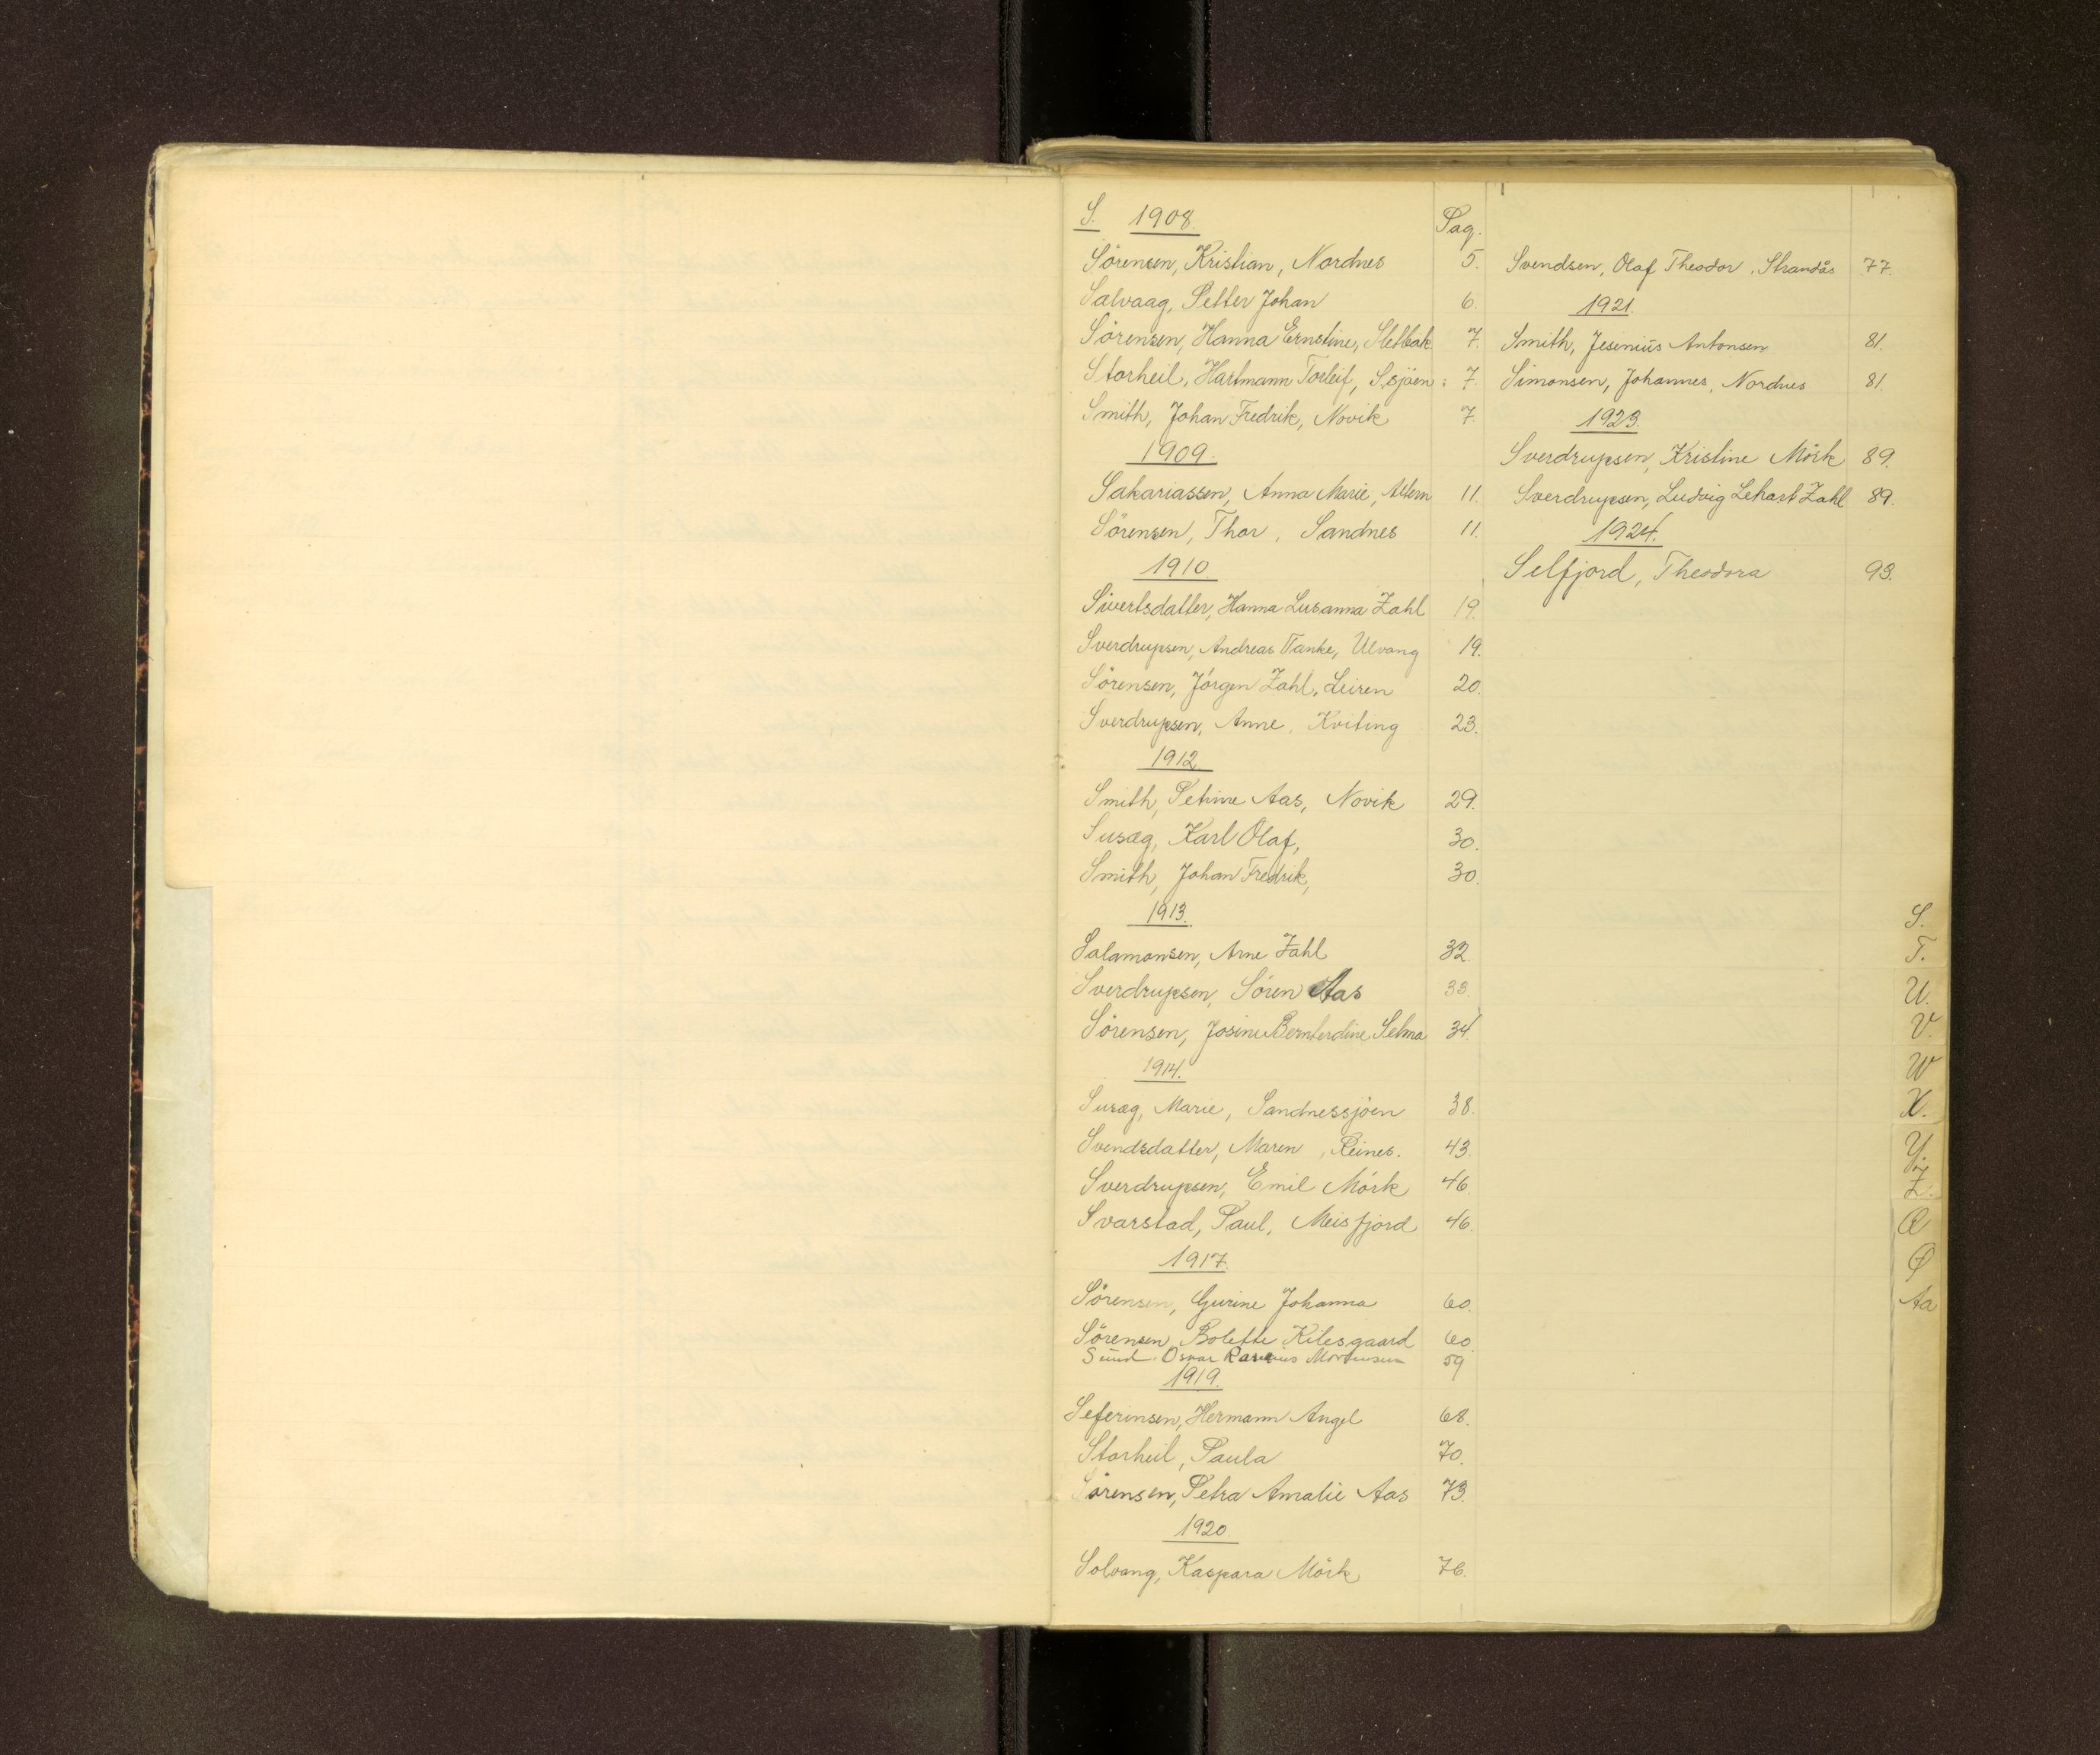 S. 1908. Pag.
Sörensen, Kristian, Nordnes 5.
Salvaag, Petter Johan 6.
Sörensen, Hanna Ernstine, Sletbak 7.
Storheil, Hartmann Torleif, S.sjöen: 7.
Smith, Johan Fredrik, Novik 7.
1909.
Sakariassen, Anna Marie, Altern 11.
Sörensen, Thor, Sandnes 11.
1910.
Sivertsdatter, Hanna Susanna Zahl 19.
Sverdrupsen, Andreas Tanke, Ulvang 19.
Sörensen, Jörgen Zahl, Leiren 20.
Sverdrupsen, Anne, Kviting 23.
1912.
Smith, Petrine Aas, Novik 29.
Susæg, Karl Olaf, 30.
Smith, Johan Fredrik, 30.
1913.
Salamonsen, Arne Zahl 32.
Sverdrupsen, Sören Aas 33.
Sörensen, Josine Selma 34.
1914.
Susæg, Marie, Sandnessjöen 38.
Svendsdatter, Maren, Reines. 43.
Sverdrupsen, Emil Mörk 46.
Svarstad, Paul, Meisfjord 46.
1917.
Sörensen, Gurine Johanna 60.
Sörensen, Bolette Kilesgaard 60.
Sund. Oskar Mortensen 59
1919.
Seferinsen, Hermann Angel 68.
Storheil, Paula 70.
Sörensen, Petra Amalie Aas 73.
1920.
Solvang, Kaspara Mörk 76.
Svendsen, Olaf Theodor, Strandås 77.
1921.
Smith, Jesenius Antonsen 81.
Simonsen, Johannes, Nordnes 81.
1923.
Sverdrupsen, Kristine Mörk 89.
Sverdrupsen, Ludvig Lekast Zahl 89.
1924.
Selfjord, Theodora 93.
S.
T.
U.
V.
W
X.
Y.
Z.
Æ
Ø
Aa